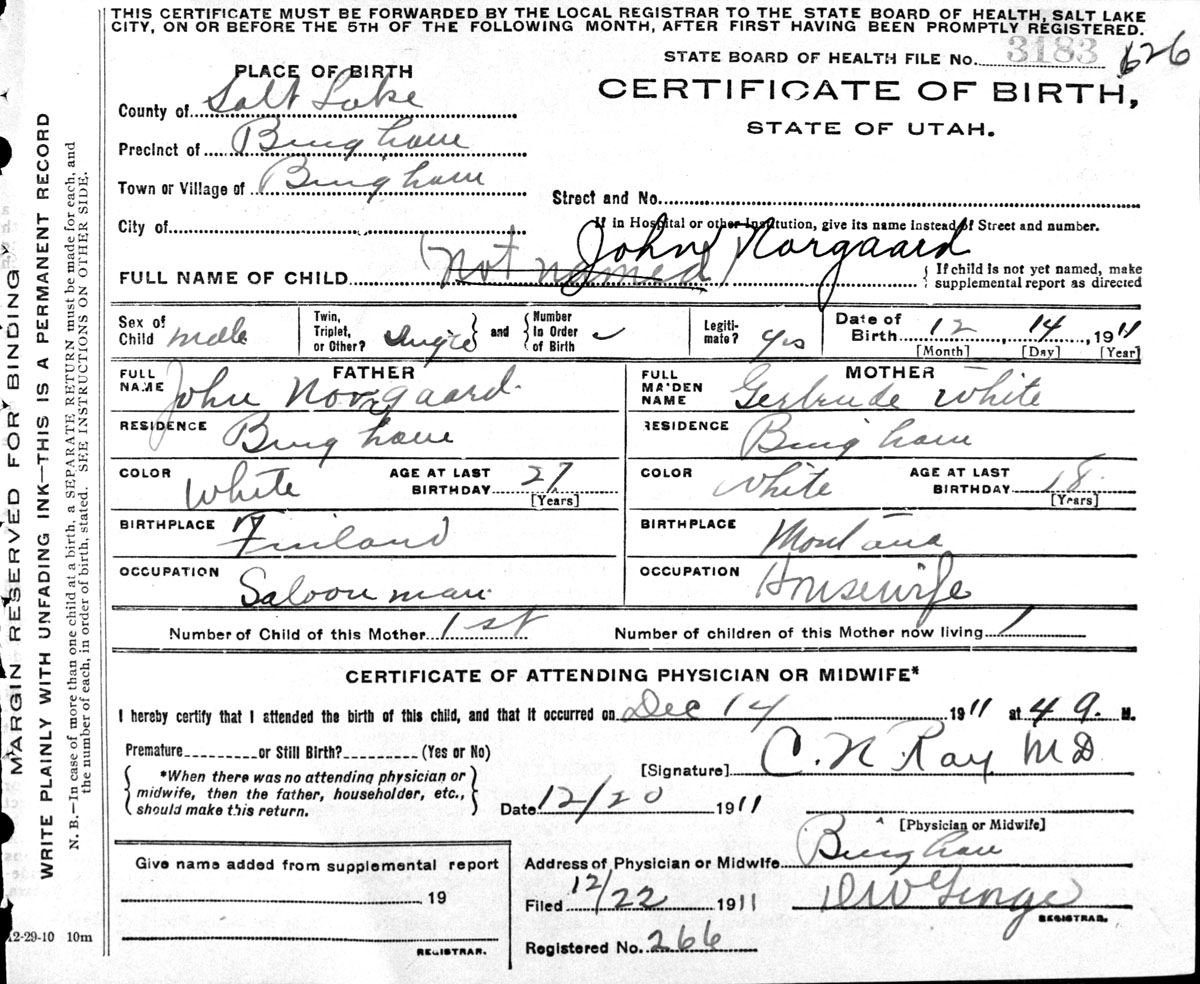 THIS CERTIFICATE MUST BE FORWARDED BY THE LOCAL REGISTRAR TO THE STATE BOARD OF HEALTH, SALT LAKE
CITY, ON OR BEFORE THE 5TH OF THE FOLLOWING MONTH, AFTER FIRST HAVING BEEN PROMPTLY REGISTERED.
STATE BOARD OF HEALTH FILE No. 3183 626
CERTIFICATE OF BIRTH,
STATE OF UTAH.
PLACE OF BIRTH
County of Salt Lake
Precinct of Bingham
Town or Village of Bingham
Street and No.
City of
If in Hospital or other Institution, give its name instead of Street and number.
FULL NAME OF CHILD (Not named) John Norgaard
If child is not yet named, make
supplemental report as directed
Sex of Child male Twin, Triplet, or Other? Single and Number In Order of Birth Legiti-mate? Yes Date of Birth 12 14, 1911
[Month] [Day] [Year]
FATHER
FULL NAME John Norgaard
RESIDENCE Bingham
COLOR White AGE AT LAST BIRTHDAY 27 [Years]
BIRTHPLACE Finland
OCCUPATION Saloon man
MOTHER
FULL MAIDEN NAME Gertrude White
RESIDENCE Bingham
COLOR White AGE AT LAST BIRTHDAY 18 [Years]
BIRTHPLACE Montana
OCCUPATION Housewife
Number of Child of this Mother 1st Number of children of this Mother now living 1
CERTIFICATE OF ATTENDING PHYSICIAN OR MIDWIFE*
I hereby certify that I attended the birth of this child, and that it occurred on Dec 14 1911 at 4 a. M.
Premature or Still Birth? (Yes or No)
[Signature] C. N. Ray MD
*When there was no attending physician or
midwife, then the father, householder, etc.,
should make this return.
Date 12/20 1911
[Physician or Midwife]
Give name added from supplemental report
19
REGISTRAR.
Address of Physician or Midwife Bingham
Filed 12/22 1911
REGISTRAR.
Registered No. 266
MARGIN RESERVED FOR BINDING
WRITE PLAINLY WITH UNFADING INK—THIS IS A PERMANENT RECORD
N. B.—In case of more than one child at a birth, a SEPARATE RETURN must be made for each, and
the number of each, in order of birth, stated. SEE INSTRUCTIONS ON OTHER SIDE.
12-29-10 10m